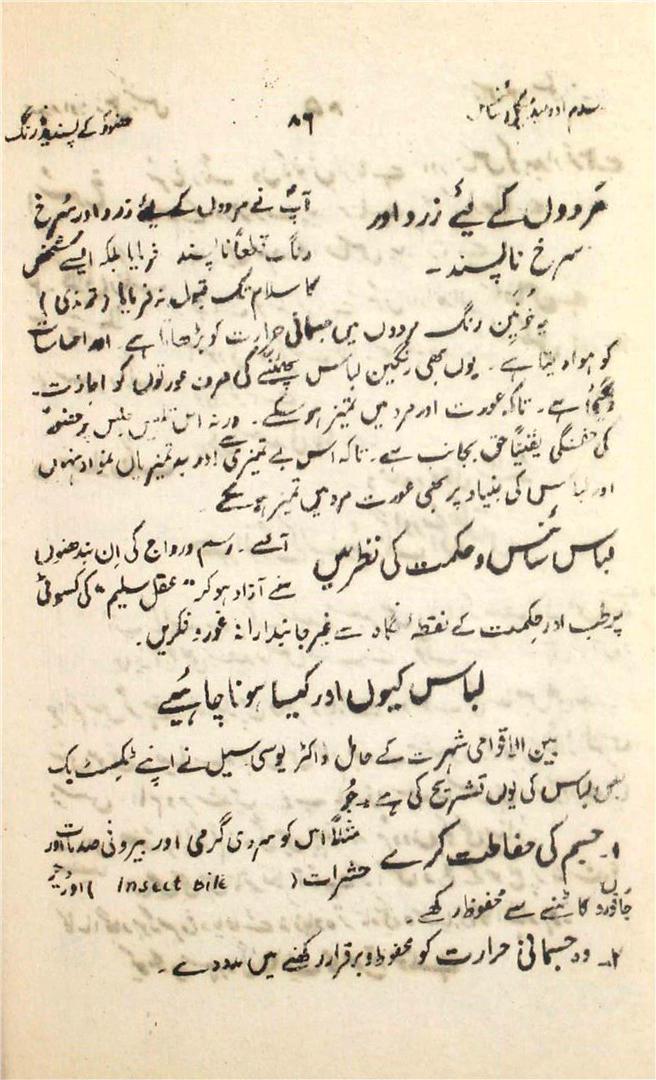 اسلام اور میڈیکل سائنس ۸۶ حضورؐ کے پسندیدہ رنگ
مَردوں کے لیٔے زرد اور
سرخ ناپسند۔
آپؐ نے مردوں کے لیٔے زرد اور سُرخ
رنگ قطعاً ناپسند فرمایا بلکہ ایسے شخص
کا سلام تک قبول نہ فرمایا (ترمذی)
یہ خونین رنگ مردوں میں جسمانی حرارت کو بڑھاتا ہے اور احساسات
کو ہوا دیتا ہے۔ یوں بھی رنگین لباس پہننے کی صرف عورتوں کو اجازت
دی گئی ہے۔ تاکہ عورت اور مرد میں تمیز ہو سکے۔ ورنہ اس تلبیس پر حضورؐ
کی خفگی یقیناً حق بجانب ہے۔ تاکہ اس بے تمیزی سے اور بدتمیزیاں نمودار نہ ہوں
اور لباس کی بنیاد پر بھی عورت مرد میں تمیز ہو سکے
لباس سائنس و حکمت کی نظر میں
آئیے۔ رسم و رواج کی اِن بندھنوں
سے آزاد ہو کر "عقل سلیم" کی کسوٹی
پر طب اور حکمت کے نقطۂ نگاہ سے غیر جانبدارانہ غور و فکر کریں۔
لباس کیوں اور کیسا ہونا چاہئیے
بین الاقوامی شہرت کے حامل ڈاکٹر یوسی سیل نے اپنے ٹیکسٹ بک
میں لباس کی یوں تشریح کی ہے۔ جو
۱۔ جسم کی حفاظت کرے
مثلاً اس کو سردی گرمی اور بیرونی صدمات اور
حشرات (insect bite) اور دیگر
جانوروں کاٹنے سے محفوظ رکھے۔
۲۔ وہ جسمانی حرارت کو محفوظ و برقرار رکھنے میں مدد دے۔